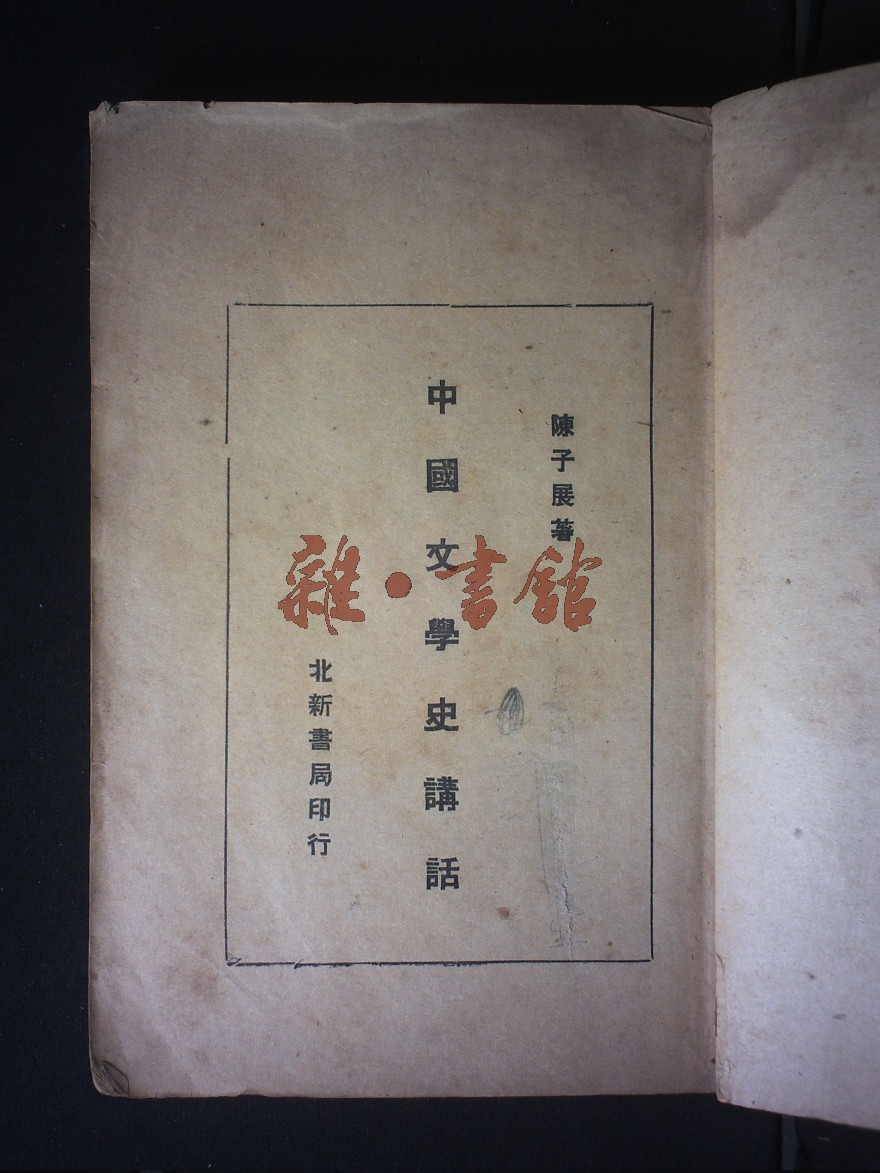 陳子展著
中國文學史講話
北新書局印行
雜·書館